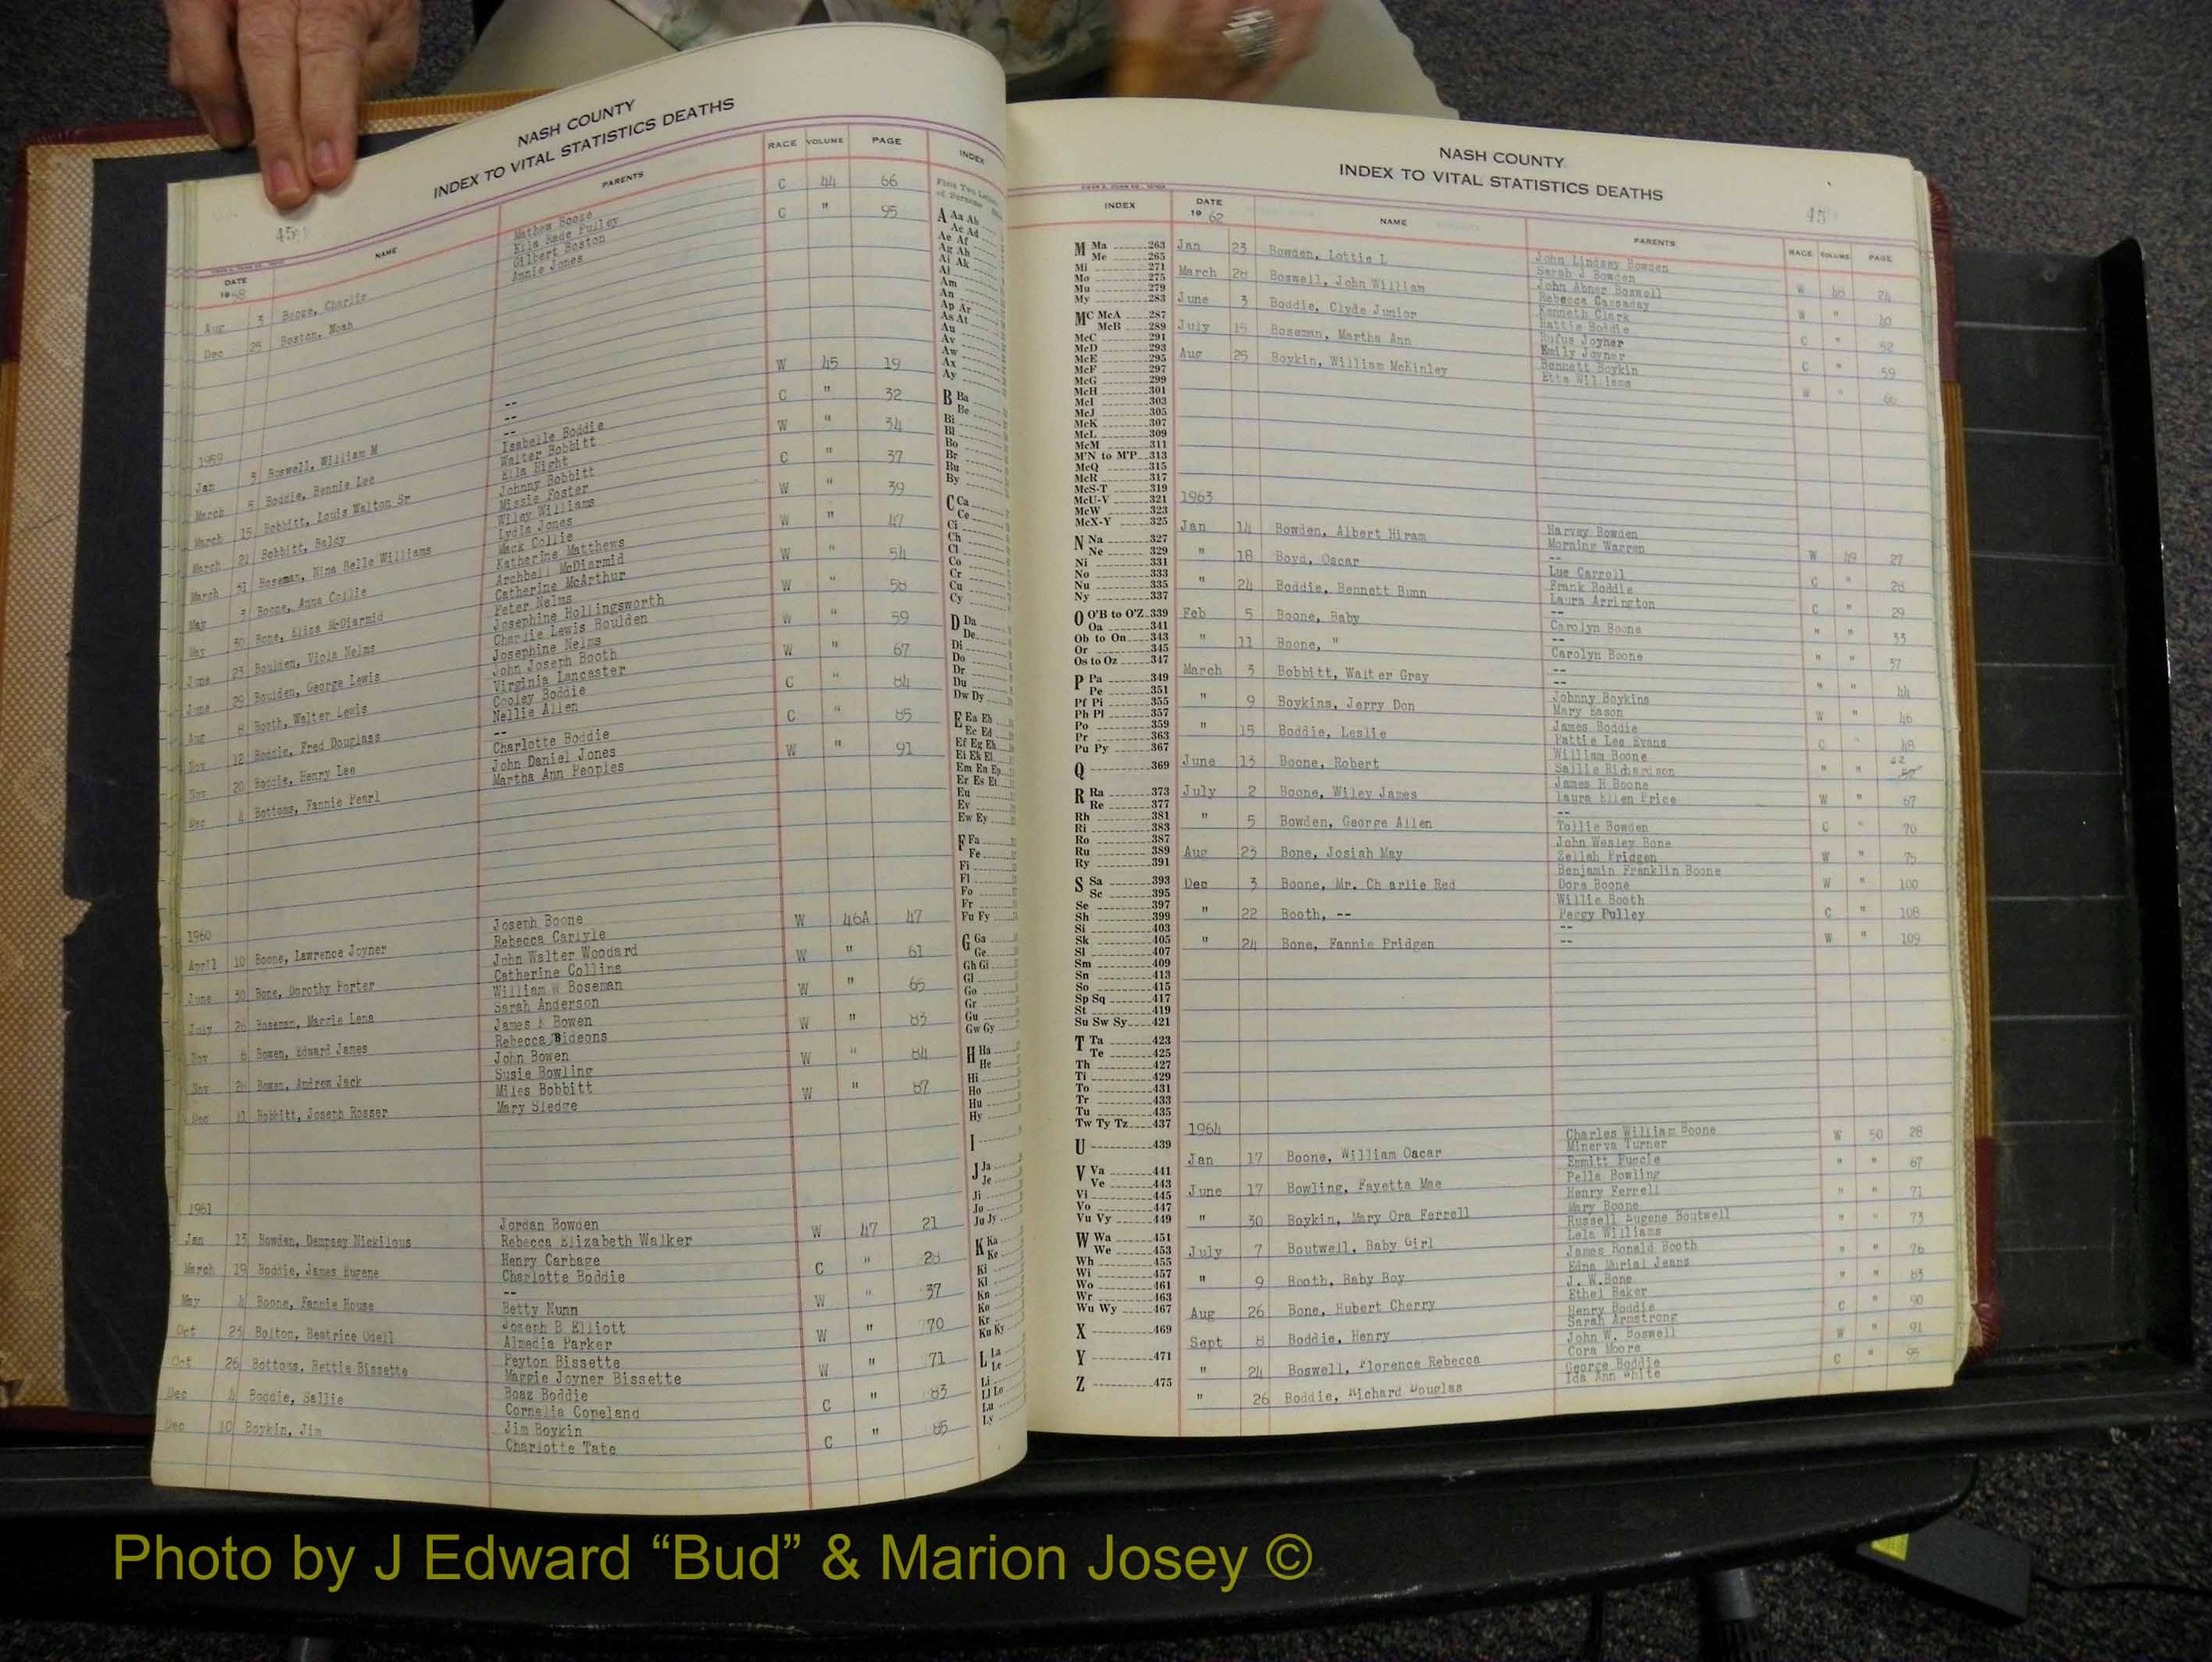 NASH COUNTY
INDEX TO VITAL STATISTICS DEATHS
45
DATE NAME PARENTS RACE VOLUME PAGE INDEX
1958
Aug 3 Booze, Charlie Mathew Booze C 44 66
Ella Kade Pulley
Dec 25 Boston, Noah Gilbert Boston C " 95
Annie Jones
1959
Jan 3 Boswell, William M -- W 45 19
--
March 5 Boddie, Bennie Lee -- C " 32
Isabelle Boddie
March 15 Bobbitt, Louis Walton Sr Walter Bobbitt W " 34
Ella Hight
March 21 Bobbitt, Johnny Bobbitt C " 37
Missie Foster
March 31 Boseman, Nina Belle Williams Wiley Williams W " 39
Lydia Jones
May 3 Boone, Anna Collie Mack Collie W " 47
Katherine Matthews
May 30 Bone, Eliza McDiarmid Archbell McDiarmid W " 54
Catherine McArthur
June 23 Boulden, Viola Nelms Peter Nelms W " 58
Josephine Hollingsworth
June 29 Boulden, George Lewis Charlie Lewis Boulden W " 59
Josephine Nelms
Aug 8 Booth, Walter Lewis John Joseph Booth W " 67
Virginia Lancaster
Nov 12 Boddie, Fred Douglass Cooley Boddie C " 84
Nellie Allen
Nov 20 Boddie, Henry Lee -- C " 85
Charlotte Boddie
Dec 4 Bottoms, Fannie Pearl John Daniel Jones W " 91
Martha Ann Peoples
1960
April 10 Boone, Lawrence Joyner Joseph Boone W 46A 47
Rebecca Carlyle
June 30 Bone, Dorothy Porter John Walter Woodard W " 61
Catherine Collins
July 26 Boseman, Maggie Lena William W Boseman W " 65
Sarah Anderson
Nov 6 Bowen, Edward James James Bowen W " 83
Rebecca Bideons
Nov 28 Bowen, Andrew Jack John Bowen W " 84
Susie Bowling
Dec 11 Bobbitt, Joseph Rosser Miles Bobbitt W " 87
Mary Sledge
1961
Jan 13 Bowden, Dempsey Nickilous Jordan Bowden W 47 21
Rebecca Elizabeth Walker
March 19 Boddie, James Eugene Henry Carbage C " 28
Charlotte Boddie
May 4 Boone, Fannie House -- W " 37
Betty Nunn
Oct 23 Bolton, Beatrice Odell Joseph B Elliott W " 70
Almedia Parker
Oct 26 Bottoms, Bettie Bissette Peyton Bissette W " 71
Maggie Joyner Bissette
Dec 4 Boddie, Sallie Boaz Boddie C " 83
Cornelia Copeland
Dec 10 Boykin, Jim Jim Boykin C " 85
Charlotte Tate
First Two Letters of Surname
A Aa Ab
Ac Ad
Ae Af
Ag Ah
Ai Ak
Al
Am
An
Ap Ar
As At
Au
Av
Aw
Ax
Ay
B Ba
Be
Bi
Bl
Bo
Br
Bu
By
C Ca
Ce
Ci
Ch
Cl
Co
Cr
Cu
Cy
D Da
De
Di
Do
Dr
Du
Dw Dy
E Ea Eb
Ec Ed
Ef Eg Eh
Ei Ek El
Em En Ep
Er Es Et
Eu
Ev
Ew Ey
F Fa
Fe
Fi
Fl
Fo
Fr
Fu Fy
G Ga
Ge
Gh Gi
Gl
Go
Gr
Gu
Gw Gy
H Ha
He
Hi
Ho
Hu
Hy
I
J Ja
Je
Ji
Jo
Ju Jy
K Ka
Ke
Ki
Kl
Kn
Ko
Kr
Ku Ky
L La
Le
Li
Ll Lo
Lu
Ly
NASH COUNTY
INDEX TO VITAL STATISTICS DEATHS
45
INDEX DATE NAME PARENTS RACE VOLUME PAGE
M Ma 263
Me 265
Mi 271
Mo 275
Mu 279
My 283
Mc McA 287
McB 289
McC 291
McD 293
McE 295
McF 297
McG 299
McH 301
McI 303
McJ 305
McK 307
McL 309
McM 311
M'N to M'P 313
McQ 315
McR 317
McS-T 319
McU-V 321
McW 323
McX-Y 325
N Na 327
Ne 329
Ni 331
No 333
Nu 335
Ny 337
O O'B to O'Z 339
Oa 341
Ob to On 343
Or 345
Os to Oz 347
P Pa 349
Pe 351
Pf Pi 355
Ph Pl 357
Po 359
Pr 363
Pu Py 367
Q 369
R Ra 373
Re 377
Rh 381
Ri 383
Ro 387
Ru 389
Ry 391
S Sa 393
Sc 395
Se 397
Sh 399
Si 403
Sk 405
Sl 407
Sm 409
Sn 413
So 415
Sp Sq 417
St 419
Su Sw Sy 421
T Ta 423
Te 425
Th 427
Ti 429
To 431
Tr 433
Tu 435
Tw Ty Tz 437
U 439
V Va 441
Ve 443
Vi 445
Vo 447
Vu Vy 449
W Wa 451
We 453
Wh 455
Wi 457
Wo 461
Wr 463
Wu Wy 467
X 469
Y 471
Z 475
1962
Jan 23 Bowden, Lottie L John Lindsey Bowden W 48 24
Sarah J Bowden
March 28 Boswell, John William John Abner Boswell W " 40
Rebecca Cassaday
June 3 Boddie, Clyde Junior Kenneth Clark C " 52
Hattie Boddie
July 15 Boseman, Martha Ann Rufus Joyner C " 59
Emily Joyner
Aug 25 Boykin, William McKinley Bennett Boykin W " 66
Etta Williams
1963
Jan 14 Bowden, Albert Hiram Harvey Bowden W 49 27
Morning Warren
" 18 Boyd, Oscar -- C " 28
Lue Carroll
" 24 Boddie, Bennett Bunn Frank Boddie C " 29
Laura Arrington
Feb 5 Boone, Baby -- " " 33
Carolyn Boone
" 11 Boone, " -- " " 37
Carolyn Boone
March 3 Bobbitt, Walter Gray -- " " 44
--
" 9 Boykins, Jerry Don Johnny Boykins W " 46
Mary Eason
" 15 Boddie, Leslie James Boddie C " 48
Pattie Lee Evans
June 13 Boone, Robert William Boone " " 62
Sallie Richardson
July 2 Boone, Wiley James James R Boone W " 67
Laura Ellen Price
" 5 Bowden, George Allen -- C " 70
Tollie Bowden
Aug 23 Bone, Josiah May John Wesley Bone W " 75
Zellah Pridgen
Dec 3 Boone, Mr. Ch arlie Red Benjamin Franklin Boone W " 100
Dora Boone
" 22 Booth, -- Willie Booth C " 108
Peggy Pulley
" 24 Bone, Fannie Pridgen -- W " 109
--
1964
Jan 17 Boone, William Oacar Charles William Boone W 50 28
Minerva Turner
June 17 Bowling, Fayetta Mae Emmitt Puncle " " 67
Pella Bowling
" 30 Boykin, Mary Ora Ferrell Henry Ferrell " " 71
Mary Boone
July 7 Boutwell, Baby Girl Russell Eugene Boutwell " " 73
Lela Williams
" 9 Booth, Baby Boy James Ronald Booth " " 76
Edna Murial Jeans
Aug 26 Bone, Hubert Cherry J. W.Bone " " 83
Ethel Baker
Sept 8 Boddie, Henry Henry Boddie C " 90
Sarah Armstrong
" 24 Boswell, Florence Rebecca John W. Boswell W " 91
Cora Moore
" 26 Boddie, Richard Douglas George Boddie C " 95
Ida Ann White
Photo by J Edward “Bud” & Marion Josey ©